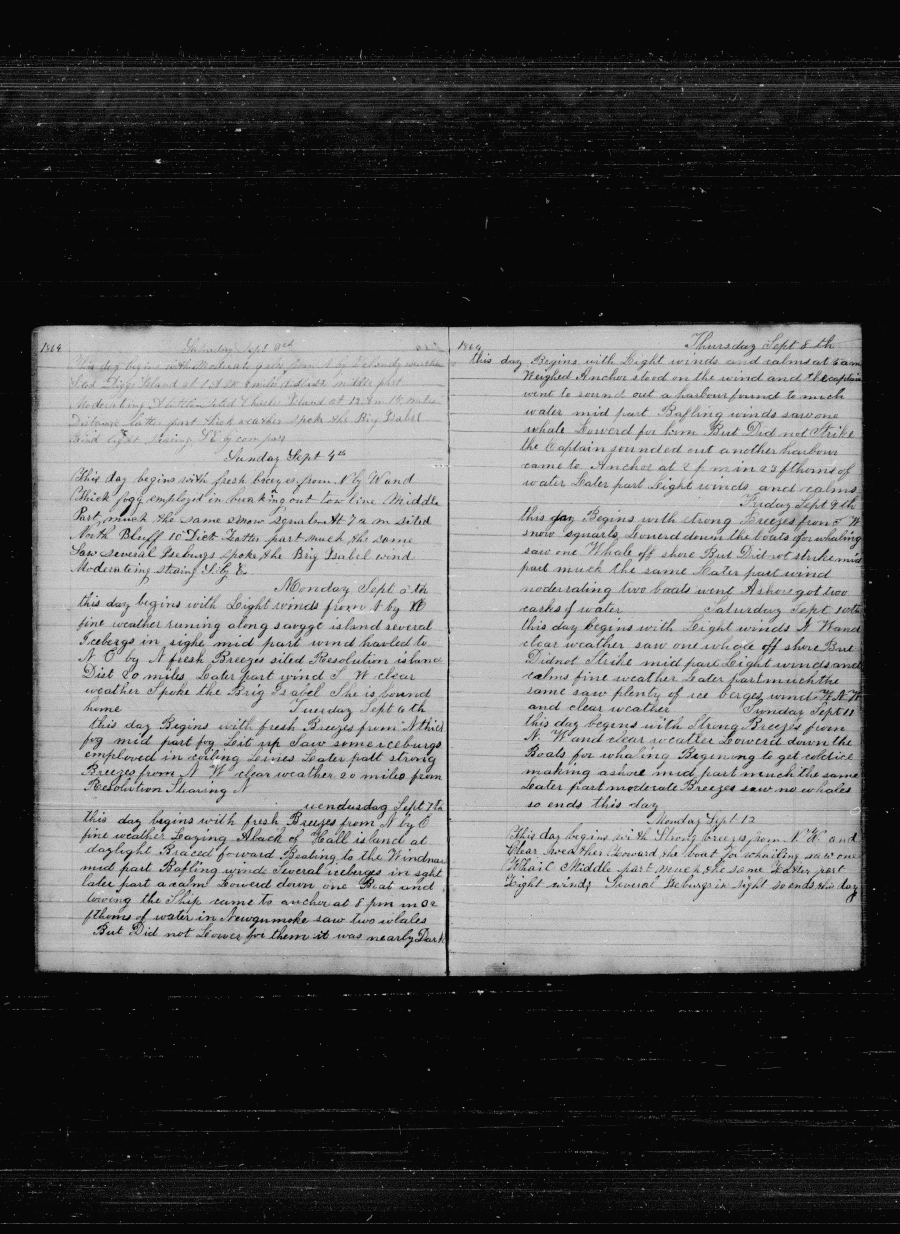 1864
Saturday Sept 3rd
This day begins with Moderate gales from N by cloudy weather
Island at 1 A M 8 miles distant middle part
Moderating sited Charles Island at 12 A m 15 miles
Distance latter part thick weather spoke the Brig Isabel
wind light staring S E by compass
Sunday Sept 4th
This day begins with fresh brezes from N by W and
thick fogg employed in breaking out tow line Middle
Part much the same snow squals At 7 a m sited
North Bluff 10 Dist Latter part much the same
Saw several Iseburgs spoke the Brig Isabel wind
Moderateing staring S E E
Monday Sept 5th
this day begins with Light winds from N by W
fine weather runing along savage island several
Icebergs in sighe mid part wind hauled to
N O by N fresh Breezes sited Resolution islane
Dist 20 miles Later part wind S W clear
weather Spoke the Brig Isabel She is bound
home Tuesday Sept 6th
this day Begins with fresh Breezes from N thick
fog mid part fog Lit up Saw some iceburgs
employed in coiling Lines Later part strong
Breezes from N W clear weather 20 miles from
Resolution Staring N
wendusdag Sept 7th
this day begins with fresh Breezes from N by O
fine weather Laying Aback of Hall island at
daylight Braced forward Beating to the Windwar
mid part Bafling winds Several icebergs in sight
later part a calm Lowered down one Boat and
towing the Ship came to anchor at 8 pm in 02
fthoms of water in Newgunmoke saw two whales
But Did not Lower for them it was nearly Dark
1864
Thursday Sept 8th
this day Begins with Light winds and calms at 5 am
Weighed Anchor stood on the wind and the captain
went to sound out a harbour found to much
water mid part Bafling winds saw one
whale Lowerd for him But Did not Strike
the Captain sounded out another harbour
came to Anchor at 2 p m in 23 fthoms of
water Later part Light winds and calms
Friday Sept 9th
this day Begins with strong Breezes from S W
snow squarls Lowerd down the boats for whaling
saw one Whale off shore But Did not strike mid
part much the same Later part wind
noderrating two boats went Ashore got two
casks of water Saturday Sept 10th
this day begins with Light winds N W and
clear weather saw one whale off shore But
Did not Strike mid part Light winds and
calms fine weather Later part much the
same saw plenty of ice berges wind W N W
and clear weather Sunday Sept 11
this day begins with Strong Breezes from
N. W and clear weather Lowerd down the
Boats for whaling Bigening to get
making ashore mid part much the same
Later part moderate Breezes saw no whales
so ends this day
Monday Sept 12
This day begins with Strong breezes from N W and
Clear weather Loward the boat for whailing saw one
Whail Middle part much the same Latter part
Light winds Several Iseburgs in sight so ends this day